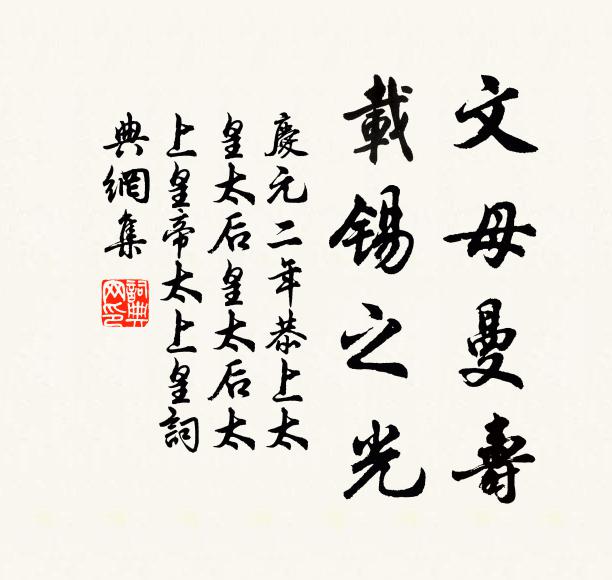 文母曼壽
載錫之光
慶元二年恭上太
皇太后皇太后太
上皇帝太上皇詞
典網集
詞典
网印